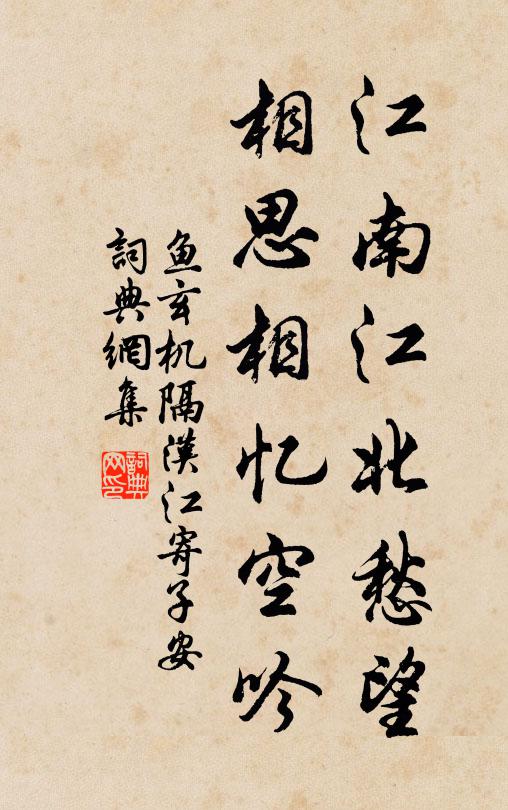 江南江北愁望
相思相忆空吟
鱼玄机隔汉江寄子安
詞典網集
詞典網印